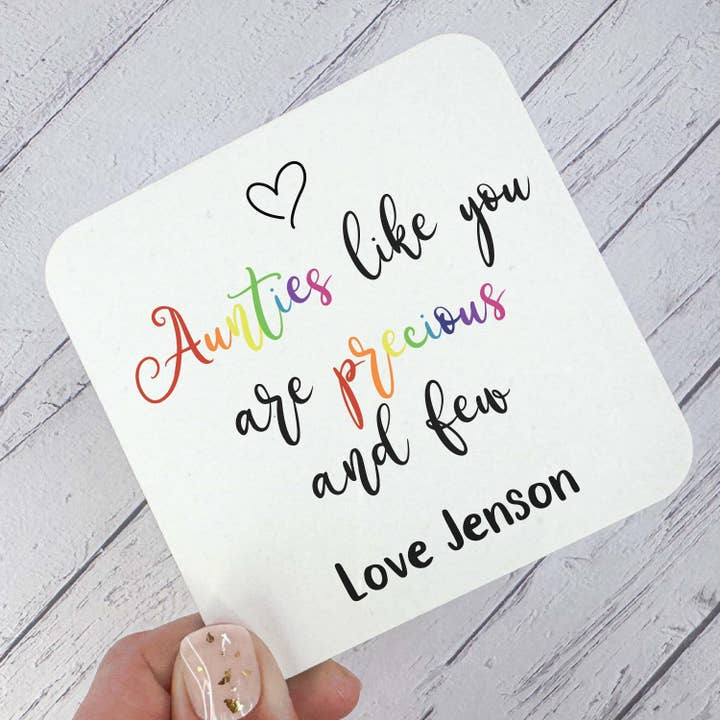 Aunties like you
are precious
and few
Love Jenson